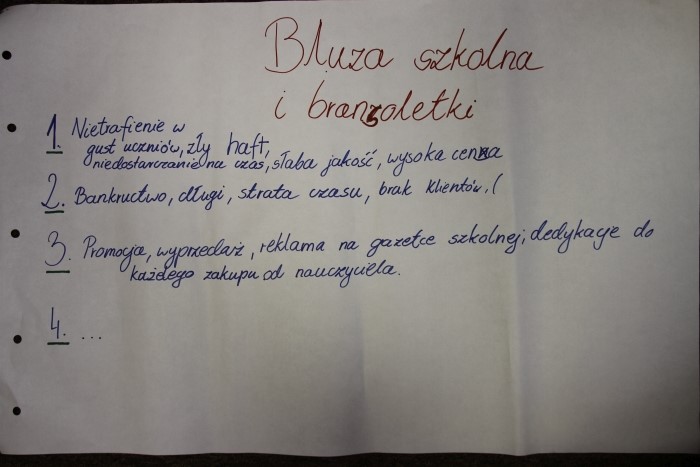 Bluza szkolna
i branzoletki
1. Nietrafienie w
gust uczniów, zły haft,
niedostarczanie na czas, słaba jakość, wysoka cena
2. Bankructwo, długi, strata czasu, brak klientów, (
3. Promocja, wyprzedaż, reklama na gazetce szkolnej, dedykacje do
każdego zakupu od nauczyciela.
4. ...